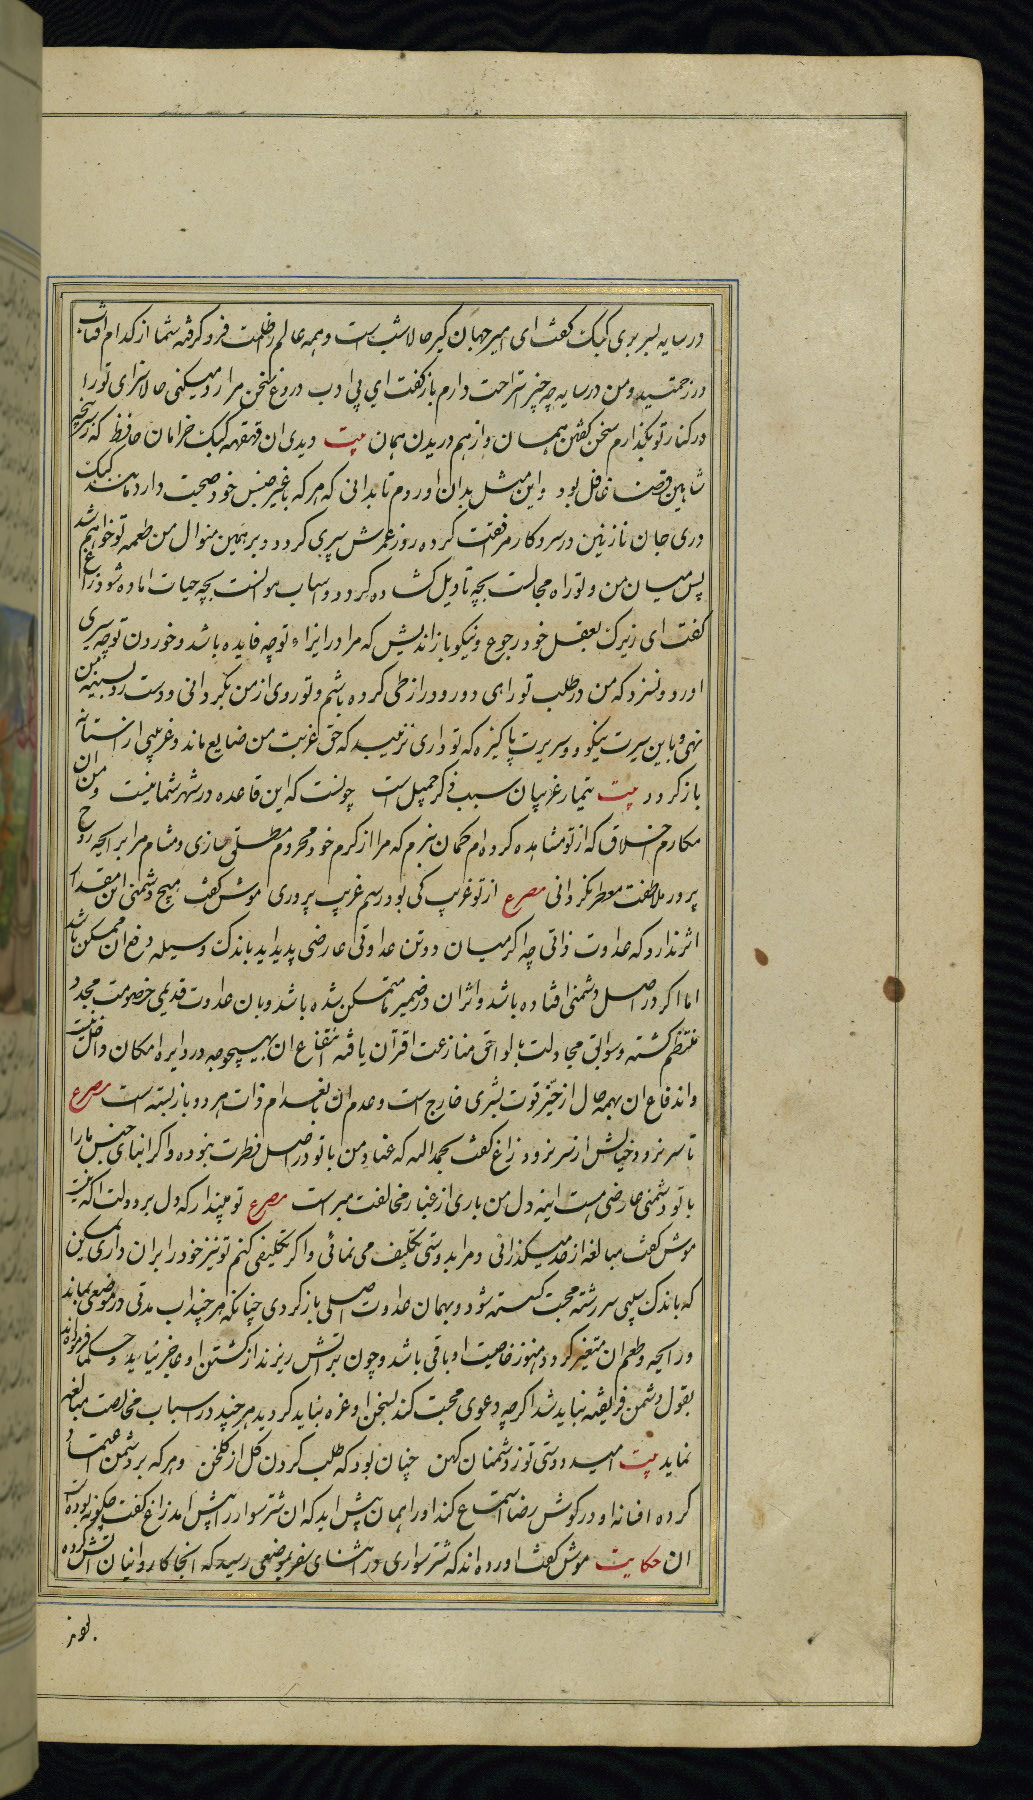 در سایه بسر بری کبک گفت ای امیر جهان گیر حالا شب است و همه عالم را ظلمت فرو گرفته شما از کدام افتاب
در زحمتید و من در سایه چه چیز استراحت دارم باز گفت ای بی ادب دروغ سخن مرا رد میکنی حالا سزای تو را
در کنار تو بگذارم سخن گفتن همان و از هم دریدن همان بیت دیدی ان قهقهه کبک خرامان حافظ که ز سرپنجه
شاهین قضا غافل بود و این مثل بدان اوردم تا بدانی که هر که با غیر جنس خود صحبت دارد مانند کبک
دری جان نازنین در سر و کار مرافقت کرده روز عمرش سپری کردد و بر همین منوال من طعمه تو خواهم شد
پس میان من و تو راه مجالست بچه تاویل کشاده کردد و اسباب موانست بچه حیات اماده شود زاغ
گفت ای زیرک بعقل خود رجوع و نیکو باز اندیش که مرا در ایزاء تو چه فایده باشد و خوردن تو چه سیری
اورد و نسزد که من در طلب تو راهی دور و دراز طی کرده باشم و تو روی از من بگردانی و دست رد بسینه من
نهی و باین سیرت نیکو و سریرت پاکیزه که تو داری نزیبد که حق غربت من ضایع ماند و غریبی از استانه
باز کردد بیت تیمار غریبان سبب ذکر جمیل است چونست که این قاعده در شهر شما نیست و من ان
مکارم اخلاق که از تو مشاهده کرده ام کمان نبرم که مرا از کرم خود محروم مطلق سازی و مشام مرا برایحه روح
پرور ملاطفت معطر نکردانی مصرع از تو غریب کی بود رسم غریب پروری موش گفت هیچ دشمنی این مقدار
اثر ندارد که عداوت ذاتی چه اگر میان دو تن عداوتی عارضی پدید اید باندک وسیله دفع ان ممکن باشد
اما اگر در اصل دشمنی افتاده باشد و اثر ان در ضمیر متمکن شده باشد و بان عداوت قدیمی خصومت مجدد
منتظم کشته و سوابق مجادلت با لواحق منازعت اقتران یافته ارتفاع ان بهیچوجه در دایره امکان داخل نیست
و اندفاع ان بهمه حال از حیز قوت بشری خارج است و عدم ان بانعدام ذات هر دو باز بسته است مصرع
تا سر نرود خیالش از سر نرود زاغ گفت بحمد الله که عناد من با تو در اصل فطرت نبوده و اگر ابنای جنس ما را
با تو دشمنی عارضی هست اینه دل من باری از غبار مخالفت مبراست مصرع تو مپندار که دل بر دولت اگه نیست
موش گفت مبالغه از حد میکذرانی و مرا بدوستی تکلیف می نمائی و اگر تکلیفی کنم تو نیز خود را بران داری ممکن
که باندک سببی سر رشته محبت کسسته شود و بهمان عداوت اصلی باز کردی چنانکه هر چند اب مدتی در موضعی بماند
و رایحه و طعم ان متغیر کردد هنوز خاصیت او باقی باشد و چون بر اتش ریزند از کشتن او عاجز نیاید و حکما فرموده اند
بقول دشمن فریفته نباید شد اگر چه دعوی محبت کند بسخن او غره نباید کردید هر چند در اسباب مخالصت مبالغه
نماید بیت امید دوستی تو ز دشمنان کهن چنان بود که طلب کردن کل از کلخن و هر که بر دشمن اعتماد
کرده افسانه او در گوش رضا استماع کند او را همان پیش اید که ان شتر سوار را پیش امد زاغ گفت چگونه بوده است
ان حکایت موش گفت اورده اند که شتر سواری در اثنای سفر بموضعی رسید که انجا کاروانیان اتش کرده
بودند